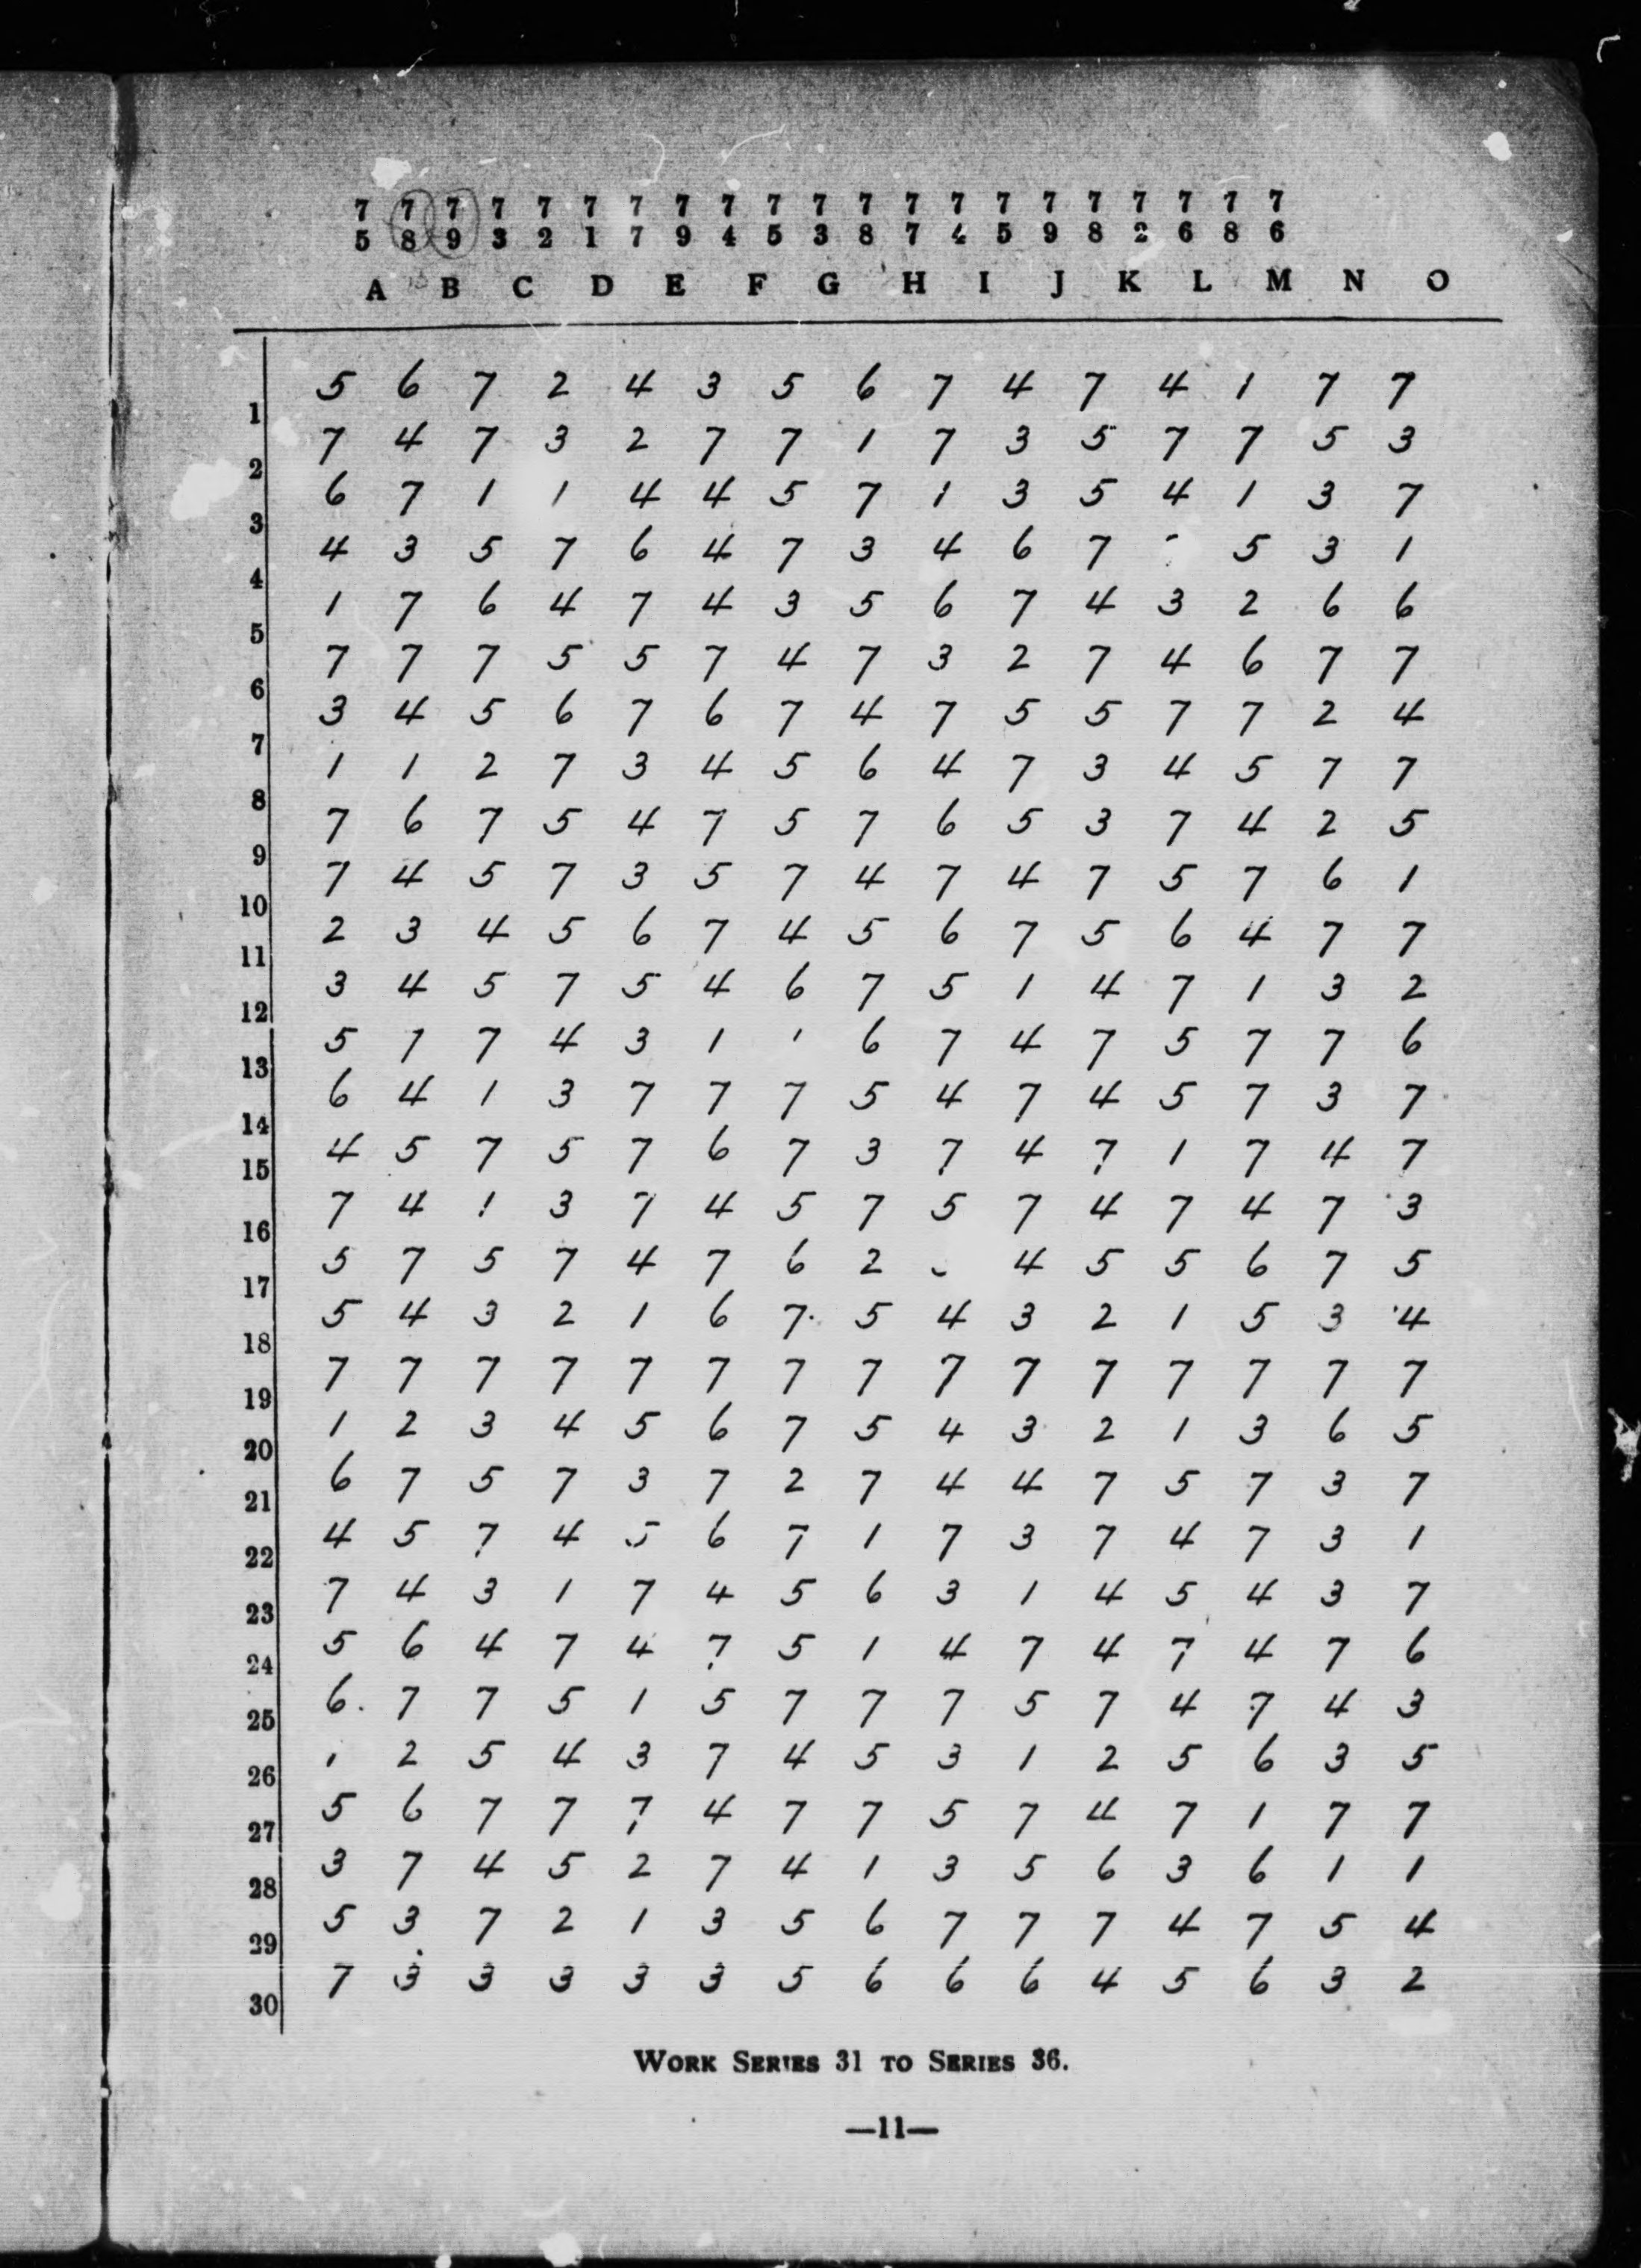 7 7 7 7 7 7 7 7 7 7 7 7 7 7 7 7 7 7 7 7 7
5 8 9 3 2 1 7 9 4 5 3 8 7 4 5 9 8 2 6 8 6
A B C D E F G H I J K L M N O
5 6 7 2 4 3 5 6 7 4 7 4 1 7 7
1
7 4 7 3 2 7 7 1 7 3 5 7 7 5 3
2
6 7 1 1 4 4 5 7 1 3 5 4 1 3 7
3
4 3 5 7 6 4 7 3 4 6 7 5 3 1
4
1 7 6 4 7 4 3 5 6 7 4 3 2 6 6
5
7 7 7 5 5 7 4 7 3 2 7 4 6 7 7
6
3 4 5 6 7 6 7 4 7 5 5 7 7 2 4
7
1 1 2 7 3 4 5 6 4 7 3 4 5 7 7
8
7 6 7 5 4 7 5 7 6 5 3 7 4 2 5
9
7 4 5 7 3 5 7 4 7 4 7 5 7 6 1
10
2 3 4 5 6 7 4 5 6 7 5 6 4 7 7
11
3 4 5 7 5 4 6 7 5 1 4 7 1 3 2
12
5 7 7 4 3 1 1 6 7 4 7 5 7 7 6
13
6 4 1 3 7 7 7 5 4 7 4 5 7 3 7
14
4 5 7 5 7 6 7 3 7 4 7 1 7 4 7
15
7 4 1 3 7 4 5 7 5 7 4 7 4 7 3
16
5 7 5 7 4 7 6 2 4 5 5 6 7 5
17
5 4 3 2 1 6 7 5 4 3 2 1 5 3 4
18
7 7 7 7 7 7 7 7 7 7 7 7 7 7 7
19
1 2 3 4 5 6 7 5 4 3 2 1 3 6 5
20
6 7 5 7 3 7 2 7 4 4 7 5 7 3 7
21
4 5 7 4 5 6 7 1 7 3 7 4 7 3 1
22
7 4 3 1 7 4 5 6 3 1 4 5 4 3 7
23
5 6 4 7 4 7 5 1 4 7 4 7 4 7 6
24
6 7 7 5 1 5 7 7 7 5 7 4 7 4 3
25
1 2 5 4 3 7 4 5 3 1 2 5 6 3 5
26
5 6 7 7 7 4 7 7 5 7 4 7 1 7 7
27
3 7 4 5 2 7 4 1 3 5 6 3 6 1 1
28
5 3 7 2 1 3 5 6 7 7 7 4 7 5 4
29
7 3 3 3 3 3 5 6 6 6 4 5 6 3 2
30
WORK SERIES 31 TO SERIES 36.
—11—